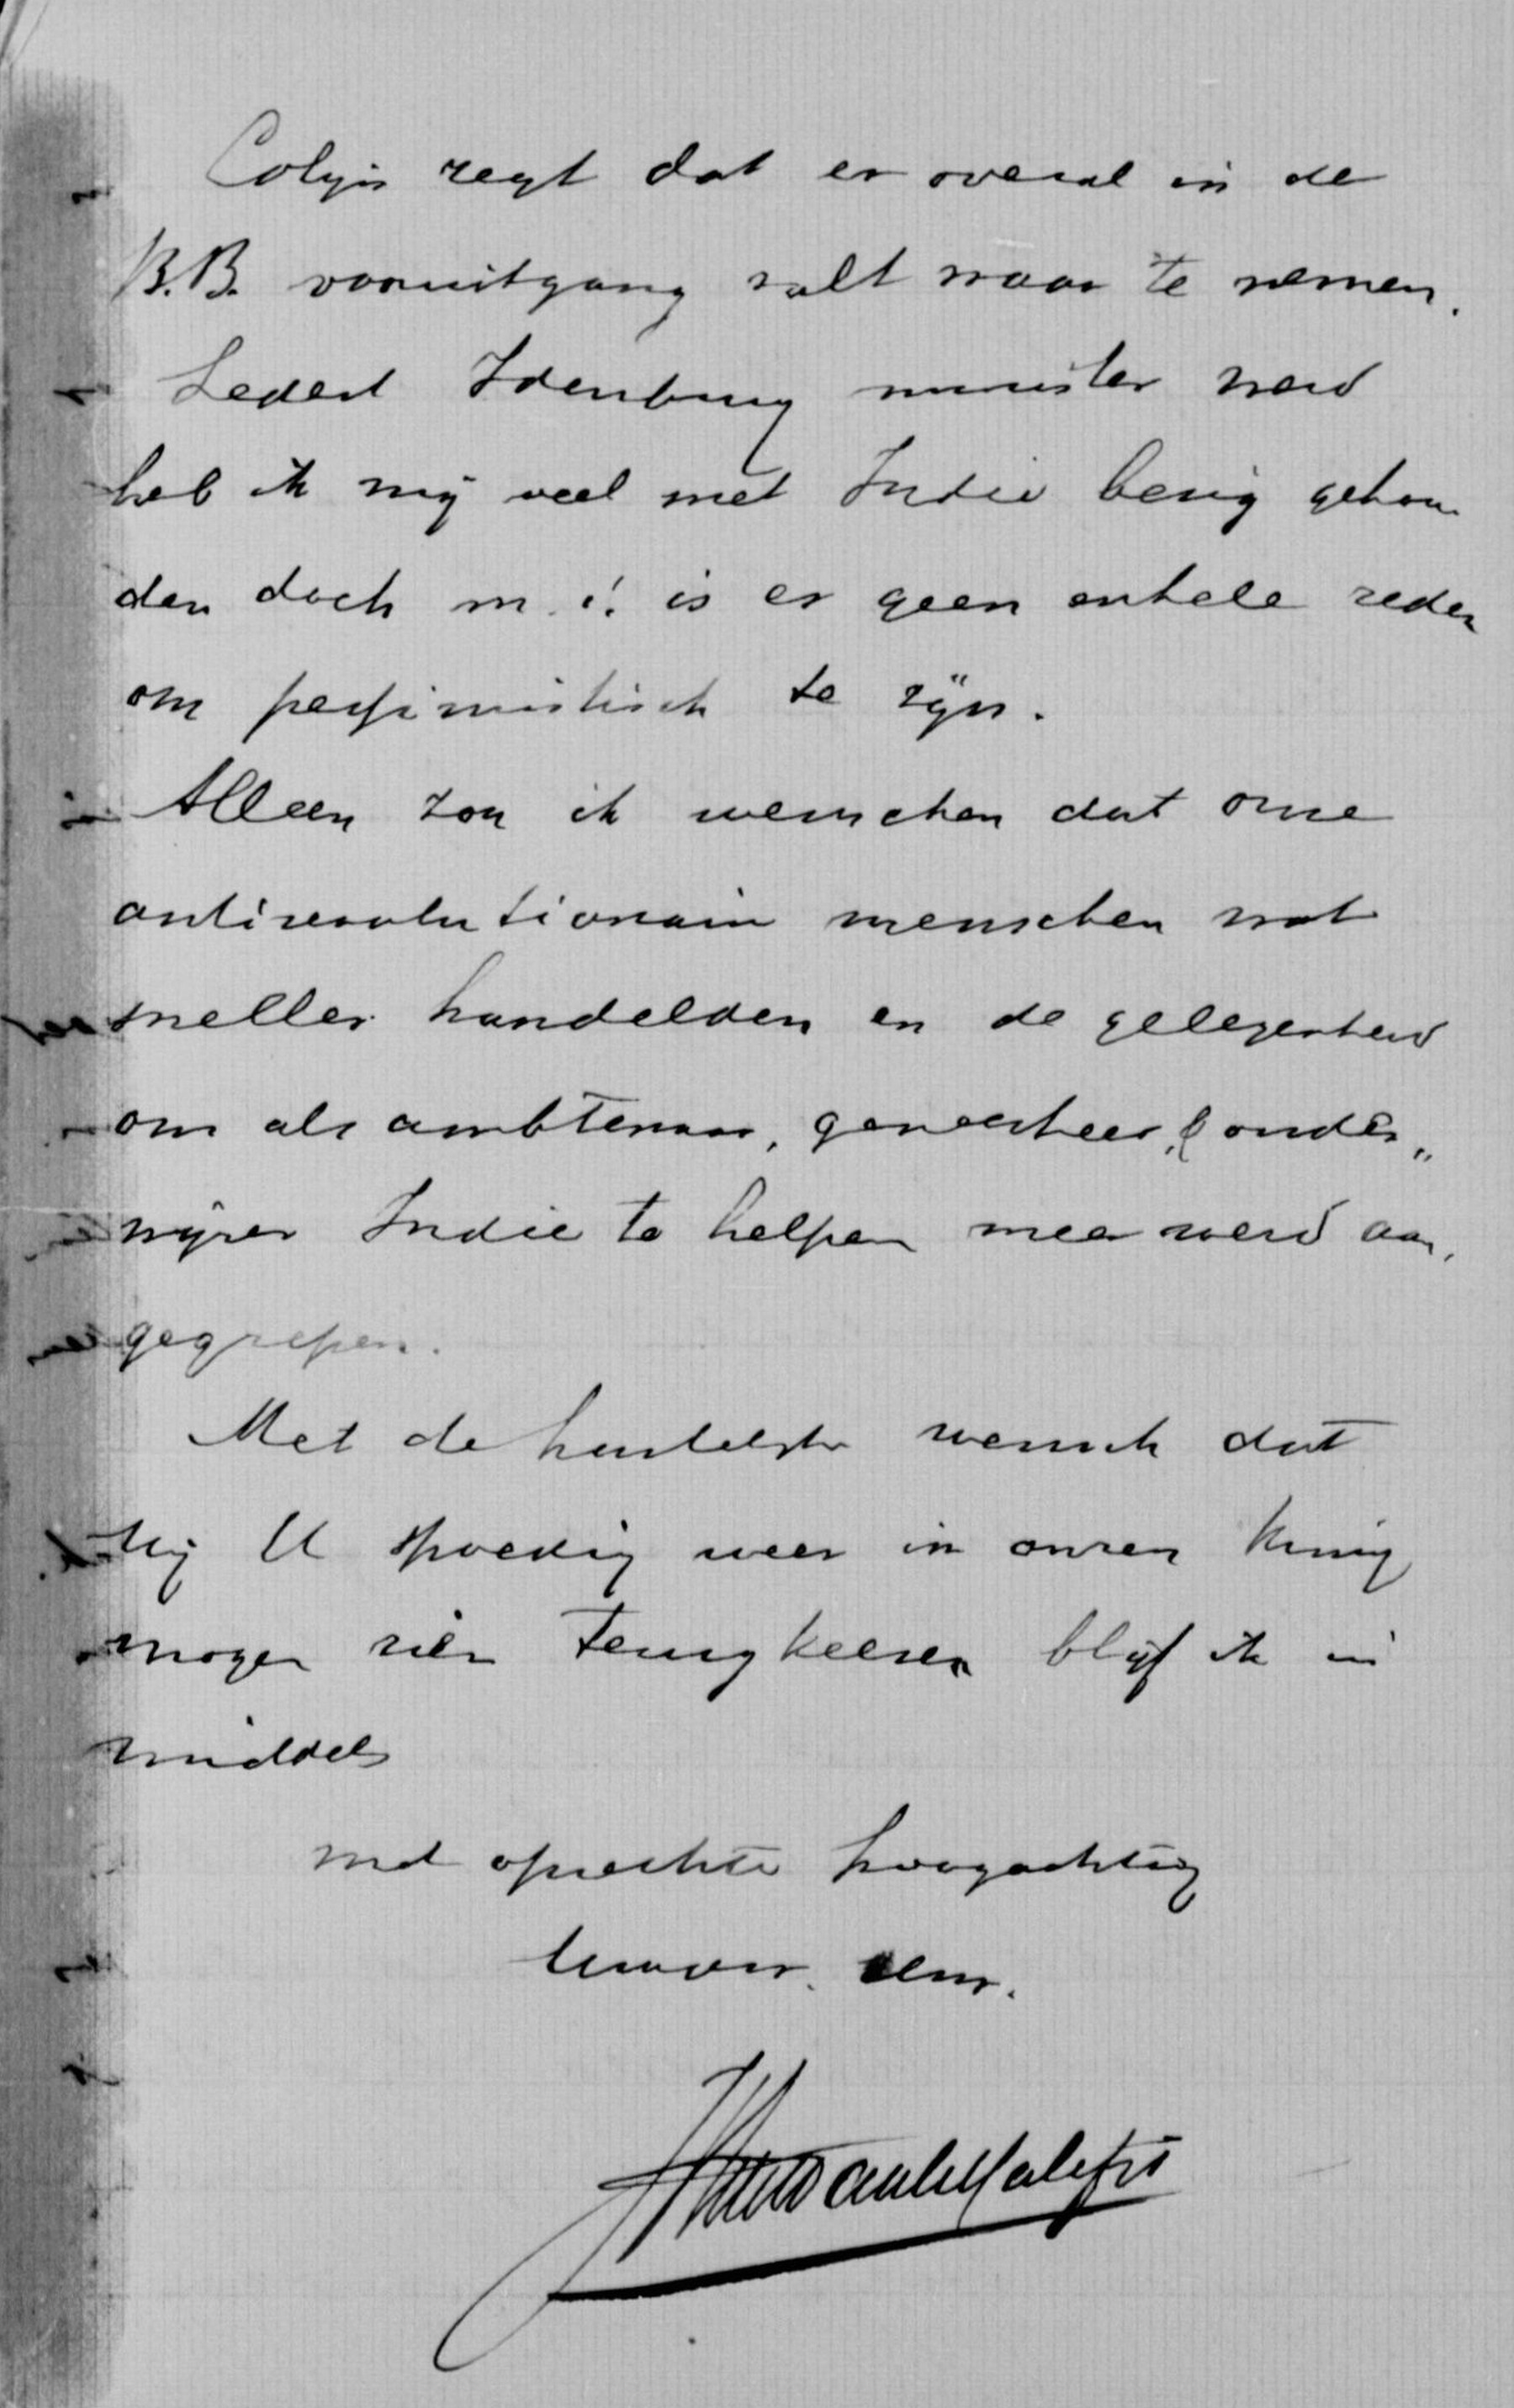 Colijn zegt dat er overal in de
B.B. vooruitgang valt waar te nemen.
Sedert Idenburg minister werd
heb ik mij veel met Indië bezig gehou
den doch m.i. is er geen enkele reden
om pessimistisch te zijn.
Alleen zou ik wenschen dat onze
antirevolutionaire menschen wat
sneller handelden en de gelegenheid
om als ambtenaar, geneesheer, onder„
wijzer Indië te helpen meer werd aan„
gegrepen.
Met de hartelijkste wensch dat
wij U spoedig weer in onzen kring
mogen zien terugkeeren blijf ik in
middels
met oprechte hoogachting
Uwdw. dnr.